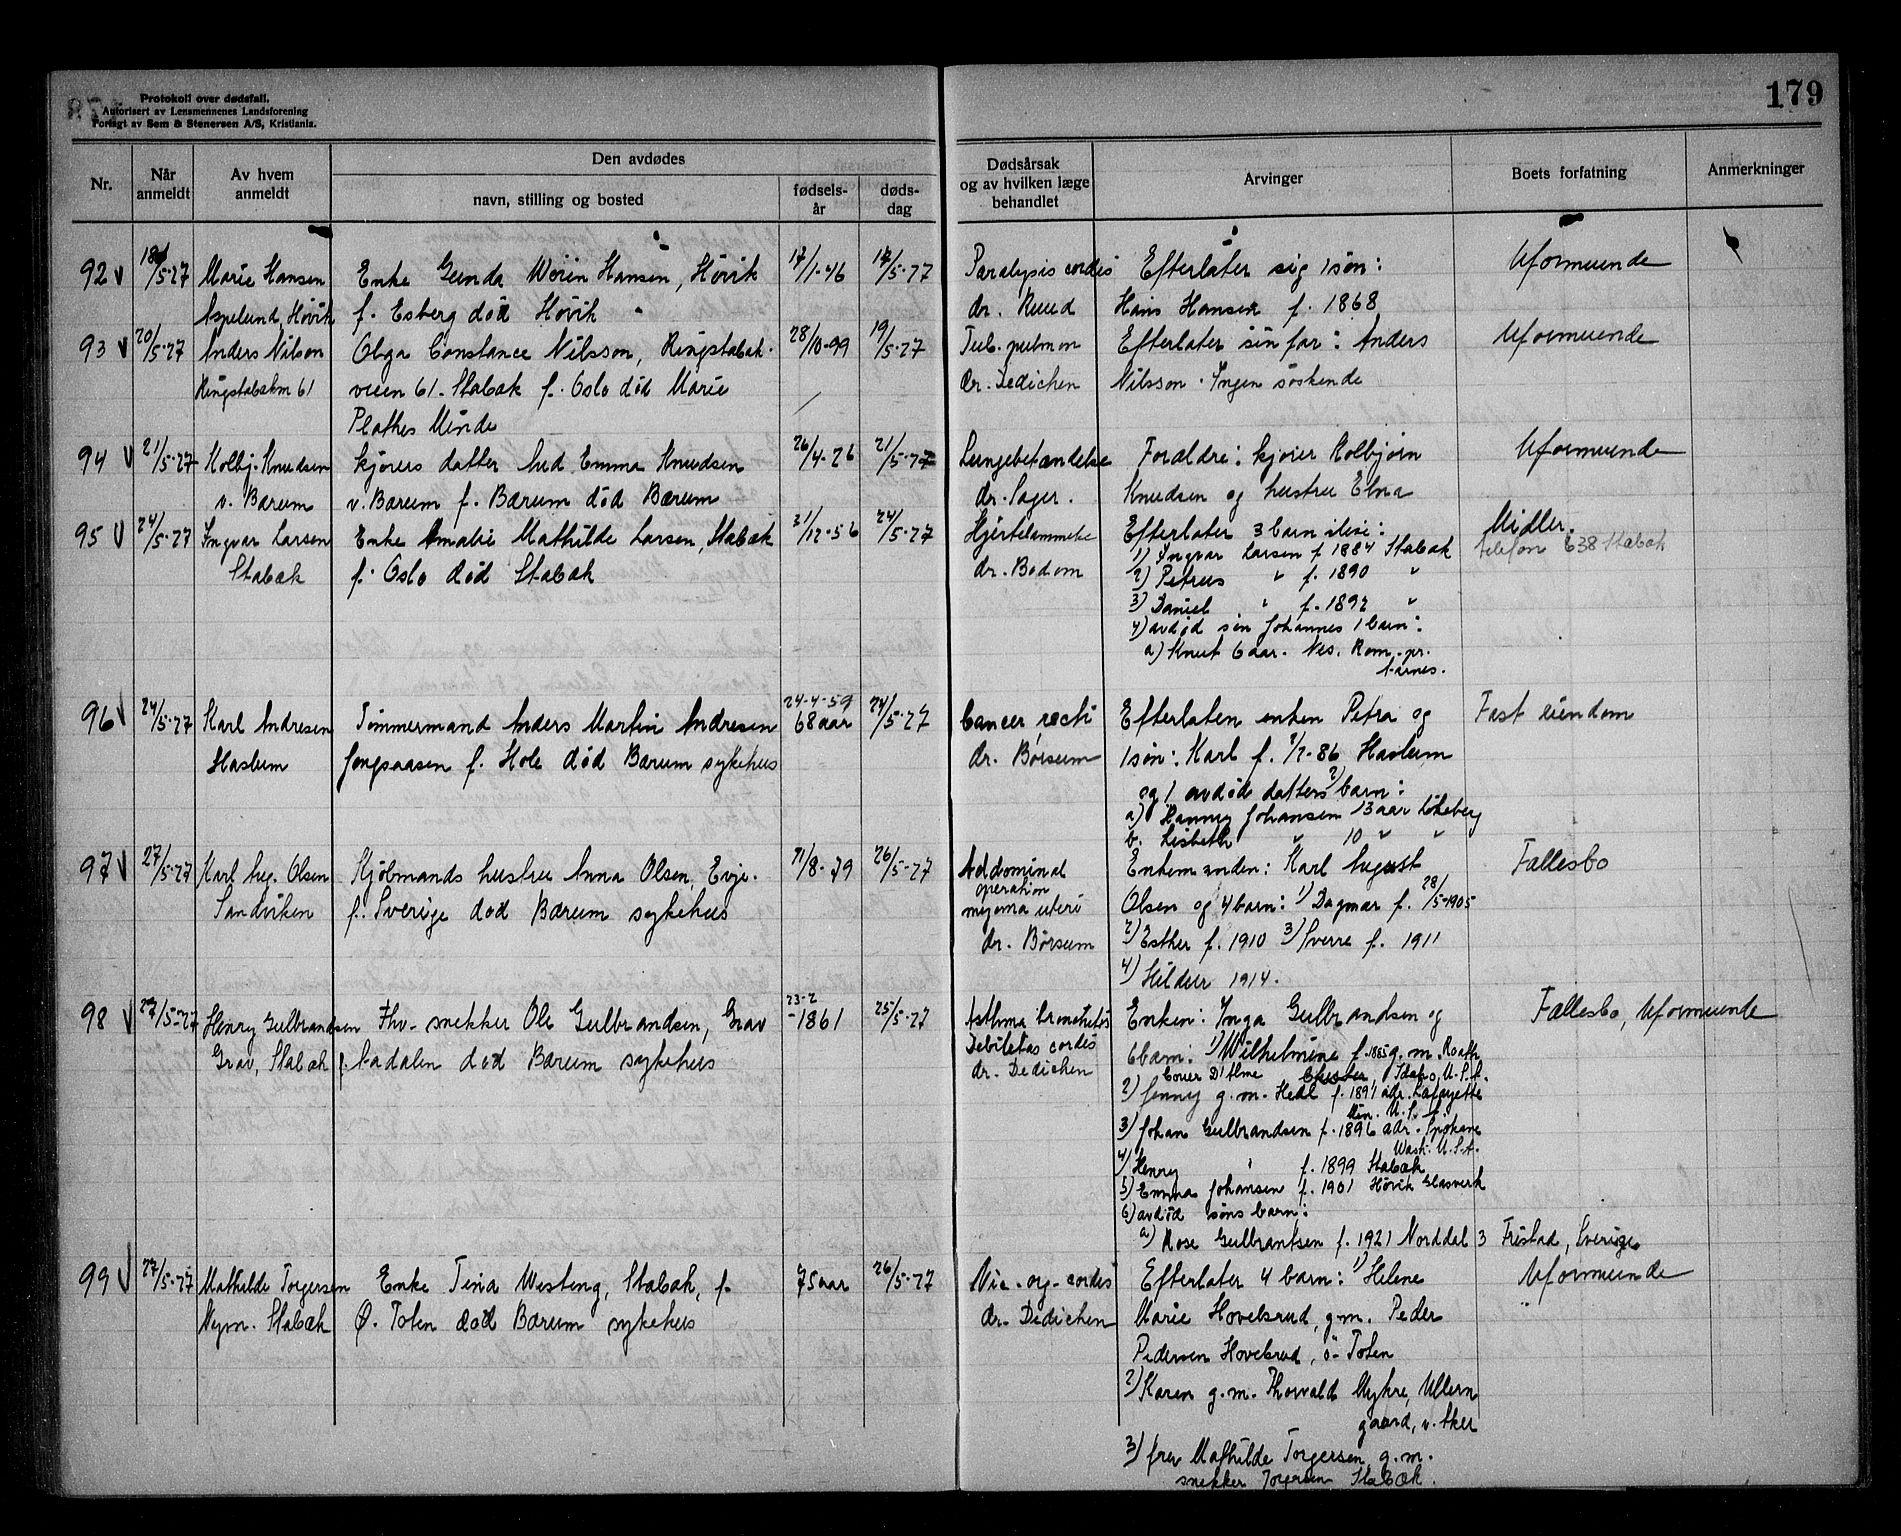 Protokoll over dødsfall.
Autorisert av Lensmennenes Landsforening
Forlagt av Sem & Stenersen A/S, Kristiania.
179
Nr.
Når anmeldt
Av hvem anmeldt
Den avdødes
navn, stilling og bosted
fødsels-år
døds-dag
Dødsårsak og av hvilken læge behandlet
Arvinger
Boets forfatning
Anmerkninger
92 18/5-27 Marie Hansen Enke Gunda Hansen, Høvik 17/1-46 17/5-27 Paralysis cordis Efterlater sig 1 søn: Uformuende
Aspelund, Høvik f. Esberg død Høvik dr. Ruud Hans Hansen f. 1868
93 20/5-27 Anders Nilson Olga Constance Nilsson, Ringstabæk- 28/10-99 19/5-27 Tub. pulmon Efterlater sin far: Anders Uformuende
61 veien 61. Stabæk f. Oslo død Marie dr. Dedichen Nilsson. Ingen søskende
Plathes Minde
94 21/5-27 Kolbj. Knudsen kjørers datter Aud Emma Knudsen 26/4-26 21/5-27 Lungebetændelse Forældre: kjører Kolbjørn Uformuende
v. Bærum v. Bærum f. Bærum død Bærum dr. Knudsen og hustru Elna
95 24/5-27 Ingvar Larsen Enke Amalie Mathilde Larsen, Stabæk 31/12-56 24/5-27 Hjertelammelse Efterlater 3 barn Midler.
Stabæk f. Oslo død Stabæk dr. Bodom 1) Ingvar Larsen f. 1884 Stabæk telefon 638 Stabæk
2) Petrus " f. 1890 "
3) Daniel " f. 1892 "
4) avdød søn Johannes 1 barn:
a) Knut 6 aar. Nes, Rom. pr.
Aarnes.
96 24/5-27 Karl Andresen Tømmermand Anders Martin Andresen 24-4-59 68 aar 24/5-27 Cancer recti Efterlater enken Petra og Fast eiendom
Haslum Jongsaasen f. Hole død Bærum sykehus dr. Børsum 1 søn: Karl f. 86 Haslum
og 1 avdød datters 2) barn:
a) Hanny Johansen 13 aar Løkeberg
b. Lisbeth " 10 " "
97 27/5-27 Karl Aug. Olsen Kjøbmands hustru Anna Olsen, Evje. 21/8-79 26/5-27 Abdominal Enkemanden: Karl August Fællesbo
Sandviken f. Sverige død Bærum sykehus operation Olsen og 4 barn: 1) Dagmar f. 28/5-1905
myoma uteri 2) Esther f. 1910 3) Sverre f. 1911
dr. Børsum 4) Hildur 1914.
98 27/5-27 Henry Gulbrandsen Fhv. snekker Ole Gulbrandsen, Grav 23-2-1861 25/5-27 Asthma bronchitis Enken: Inga Gulbrandsen og Fællesbo, Uformuende
Grav, Stabæk f. Aadalen død Bærum sykehus Debilitas cordis 6 barn: 1) Wilhelmine f. 1885 g.m. Roath
dr. Dedichen Idaho, U.S.A.
2) Jenny g.m. Hedl f. 1891 adr. Lafayette
Min. U.S.A.
3) Johan Gulbrandsen f. 1896 adr. Spokane
Wash. U.S.A.
4) Henry " f. 1899 Stabæk
5) Emma Johansen f. 1901 Høvik Glasverk
6) avdød søns barn:
a) Rose Gulbrantsen f. 1921 Norddal 3 Fristad, Sverige
99 27/5-27 Mathilde Torgersen Enke Tina Westeng, Stabæk, f. 75 aar 26/5-27 Vic. org. cordis Efterlater 4 barn: 1) Helene Uformuende
Stabæk Ø. Toten død Bærum sykehus dr. Dedichen Marie Hovelsrud, g.m. Peder
Pedersen Hovelsrud, ö. Toten
2) Karen g.m. Thorvald Mykre, Ullern
gaard, v. Aker
3) fru Mathilde Torgersen, g.m.
snekker Torgersen Stabæk.